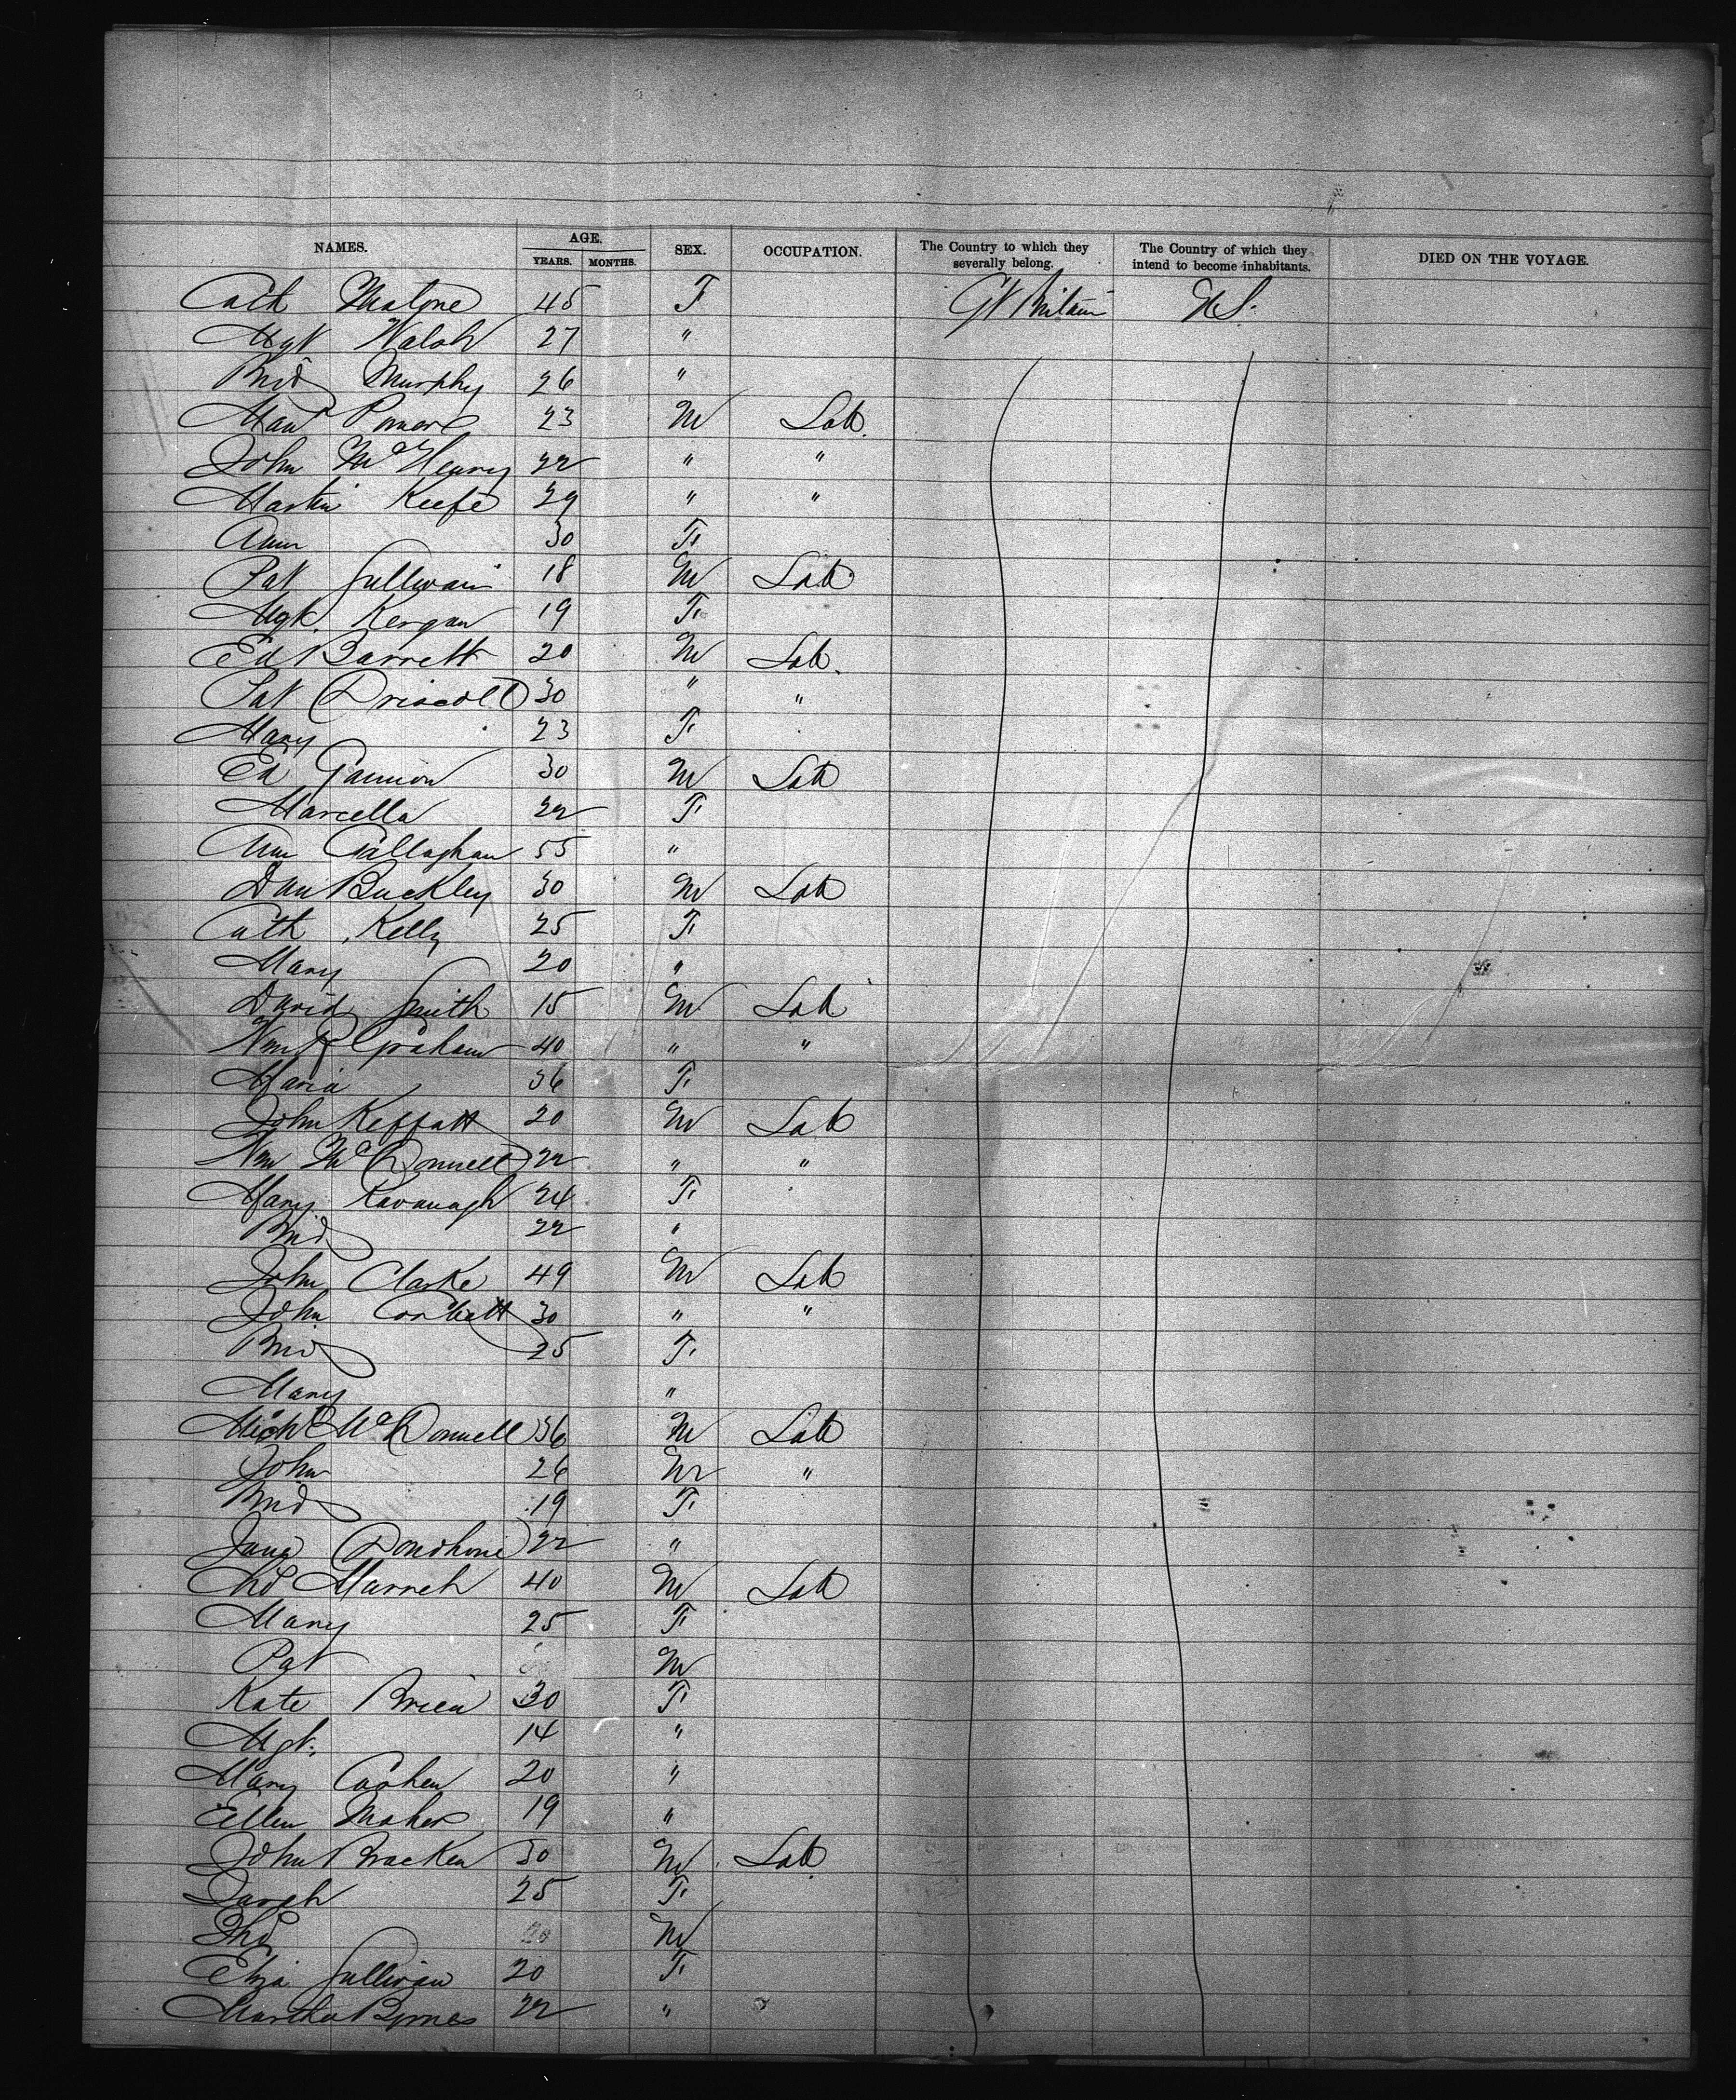 NAMES. AGE. SEX. OCCUPATION. The Country to which they severally belong. The Country of which they intend to become inhabitants. DIED ON THE VOYAGE.
YEARS. MONTHS.
Cath Malone 45 F Gt Britain U S.
Mgt Walsh 27 "
Brid Murphy 26 "
Power 23 M Lab.
John McHenry 22 " "
Martin Keefe 29 " "
Ann 30 F
Pat Sullivan 18 M Lab
Mgt. Kergan 19 F
Ed Barrett 20 M Lab.
Pat Driscoll 30 " "
Mary 23 F
Ed Gannon 30 M Lab
Marcella 22 F
Ann Callaghan 55 "
Dan Buckley 30 M Lab
Cath Kelly 25 F
Mary 20 "
David Smith 15 M Lab
Wm Graham 40 " "
Maria 36 F
John 20 M Lab
Wm McDonnell 22 " "
Mary Kavanagh 24 F
Brid 22 "
John Clarke 49 M Lab
John Corbett 30 " "
Brid 25 F
Mary "
Michl McDonnell 36 M Lab
John 26 M "
Brid 19 F
Jane Donohoue 22 "
40 M Lab
Mary 25 F
Pat M
Kate Brien 30 F
Mgt. 14 "
Mary Cashen 20 "
Ellen Maher 19 "
John Bracken 30 M Lab
Sarah 25 F
Tho M
Eliza Sullivan 20 F
Martha Byrnes 22 "